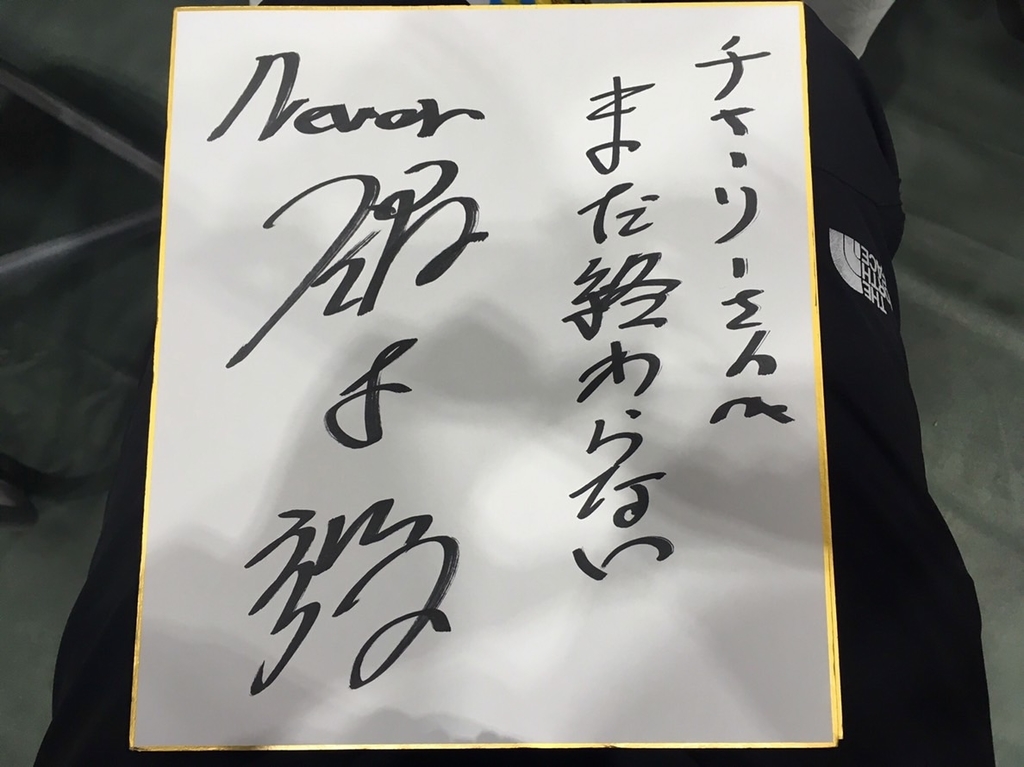 チャーリーさん江
まだ終わらない
Never
THE
NORTH
FACE